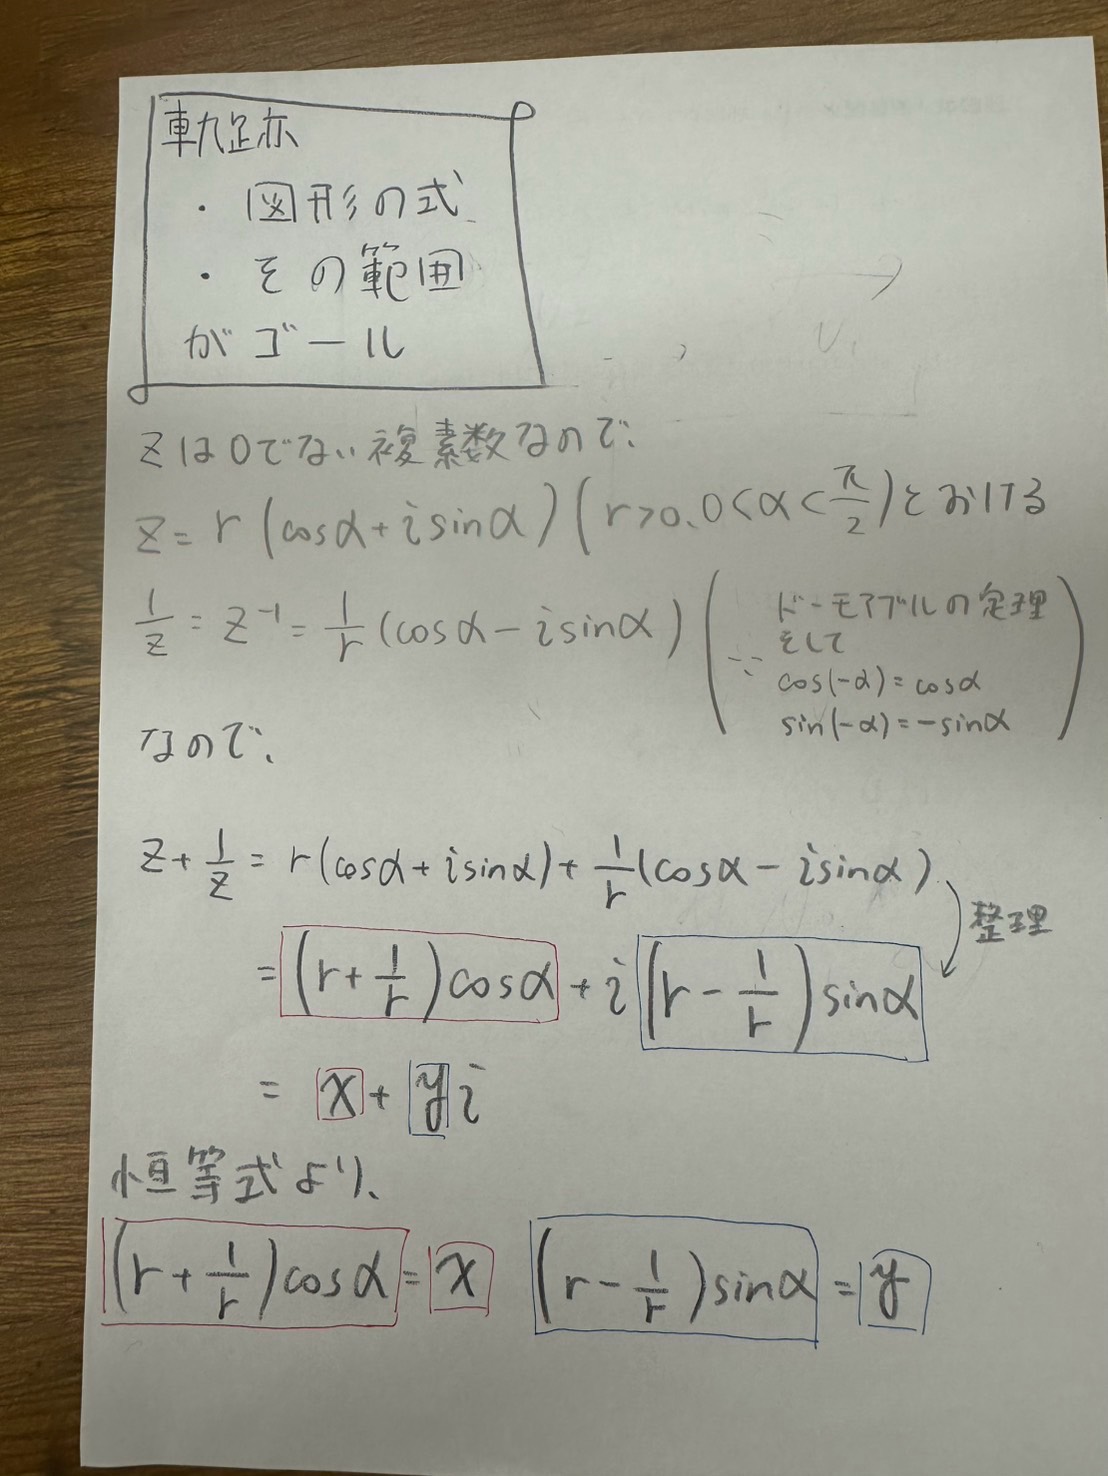 軌跡
・図形の式
・その範囲
がゴール
zは0でない複素数なので、
z = r (cosα + i sinα) ( r>0, 0<α<π/2 ) とおける
1/z = z⁻¹ = 1/r (cosα - i sinα) ( ∵ ド・モアブルの定理
そして
cos(-α) = cosα
sin(-α) = -sinα )
なので、
z + 1/z = r(cosα + i sinα) + 1/r (cosα - i sinα)
整理
= (r + 1/r) cosα + i (r - 1/r) sinα
= x + y i
恒等式より、
(r + 1/r) cosα = x (r - 1/r) sinα = y